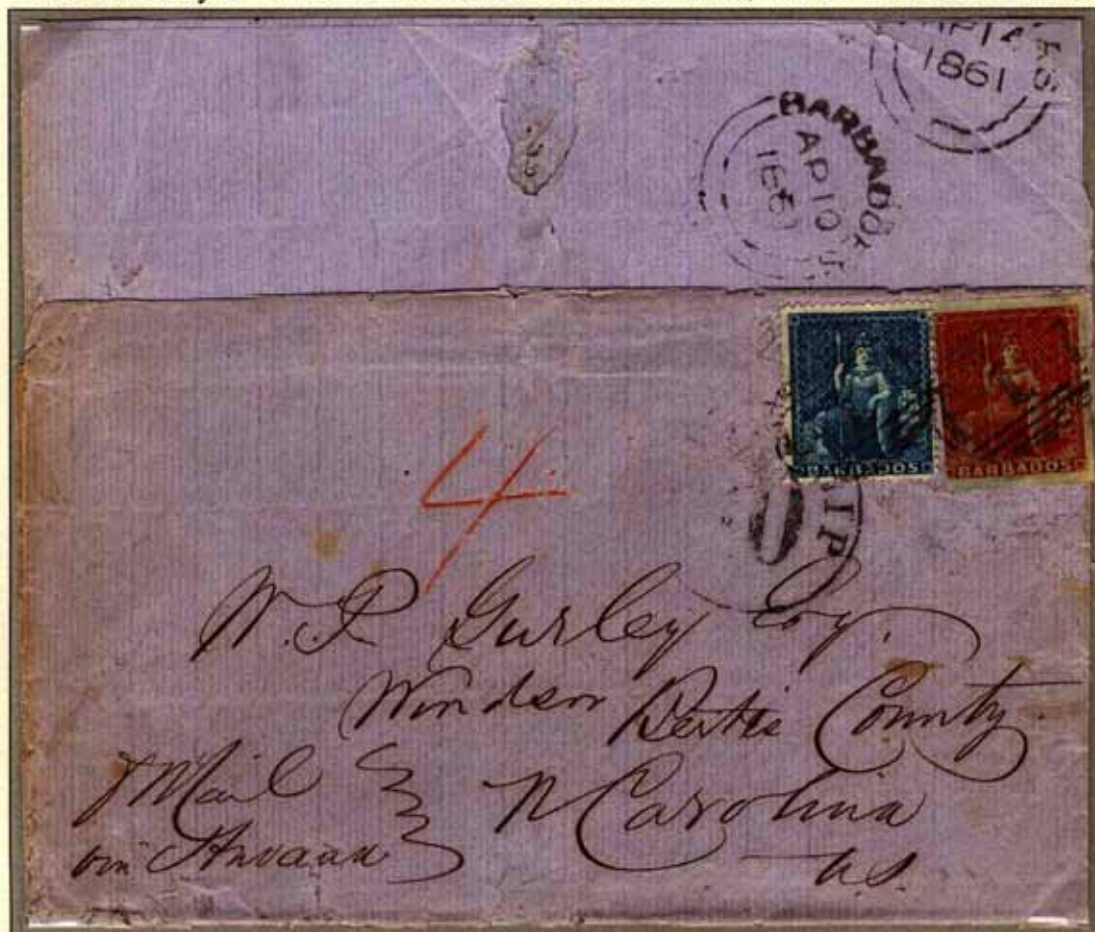 AP 14
1861
BARBADOS
AP 10
186
BARBADOS
BARBADOS
4
SHIP
W. P. Gurley Esq.
Windsor Bertie County
N Carolina
U.S.
Mail
via Havana